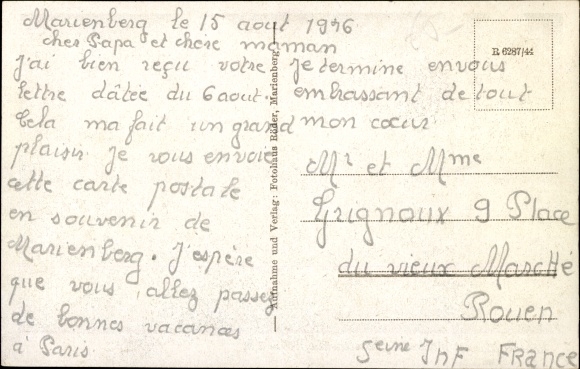 Marienberg le 15 août 1946
cher Papa et chère maman
J'ai bien reçu votre
lettre dâtée du 6 aout.
Cela ma fait un grand
plaisir. Je vous envoie
cette carte postale
en souvenir de
Marienberg. J'espère
que vous allez passez
de bonnes vacances
à Paris.
Je termine en vous
embrassant de tout
mon cœur
Aufnahme und Verlag: Fotohaus Röder, Marienberg
R 6287/44
Mr et Mme
Grignaux 9 Place
du vieux Marché
Rouen
Seine Inf FRANCE